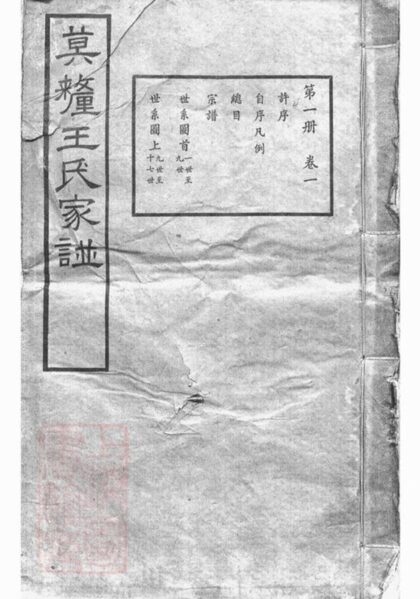 莫釐王氏家譜
第一册 卷一
許序
自序凡例
總目
宗譜
世系圖首一世至九世
世系圖上九世至十七世